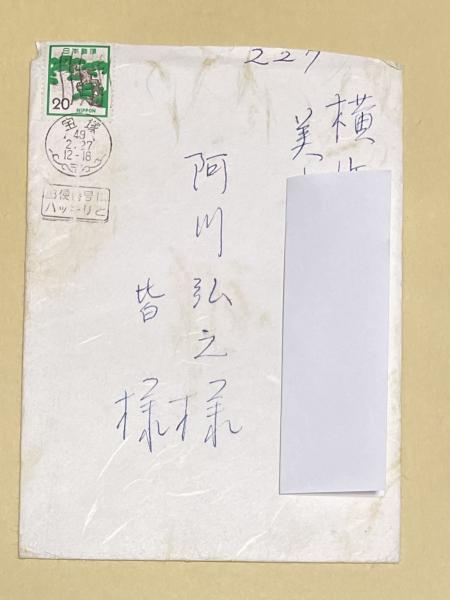 日本郵便
20
NIPPON
宝塚
49
2.27
12-18
郵便番号は
ハッキリと
227
横
美
阿川弘之様
皆様